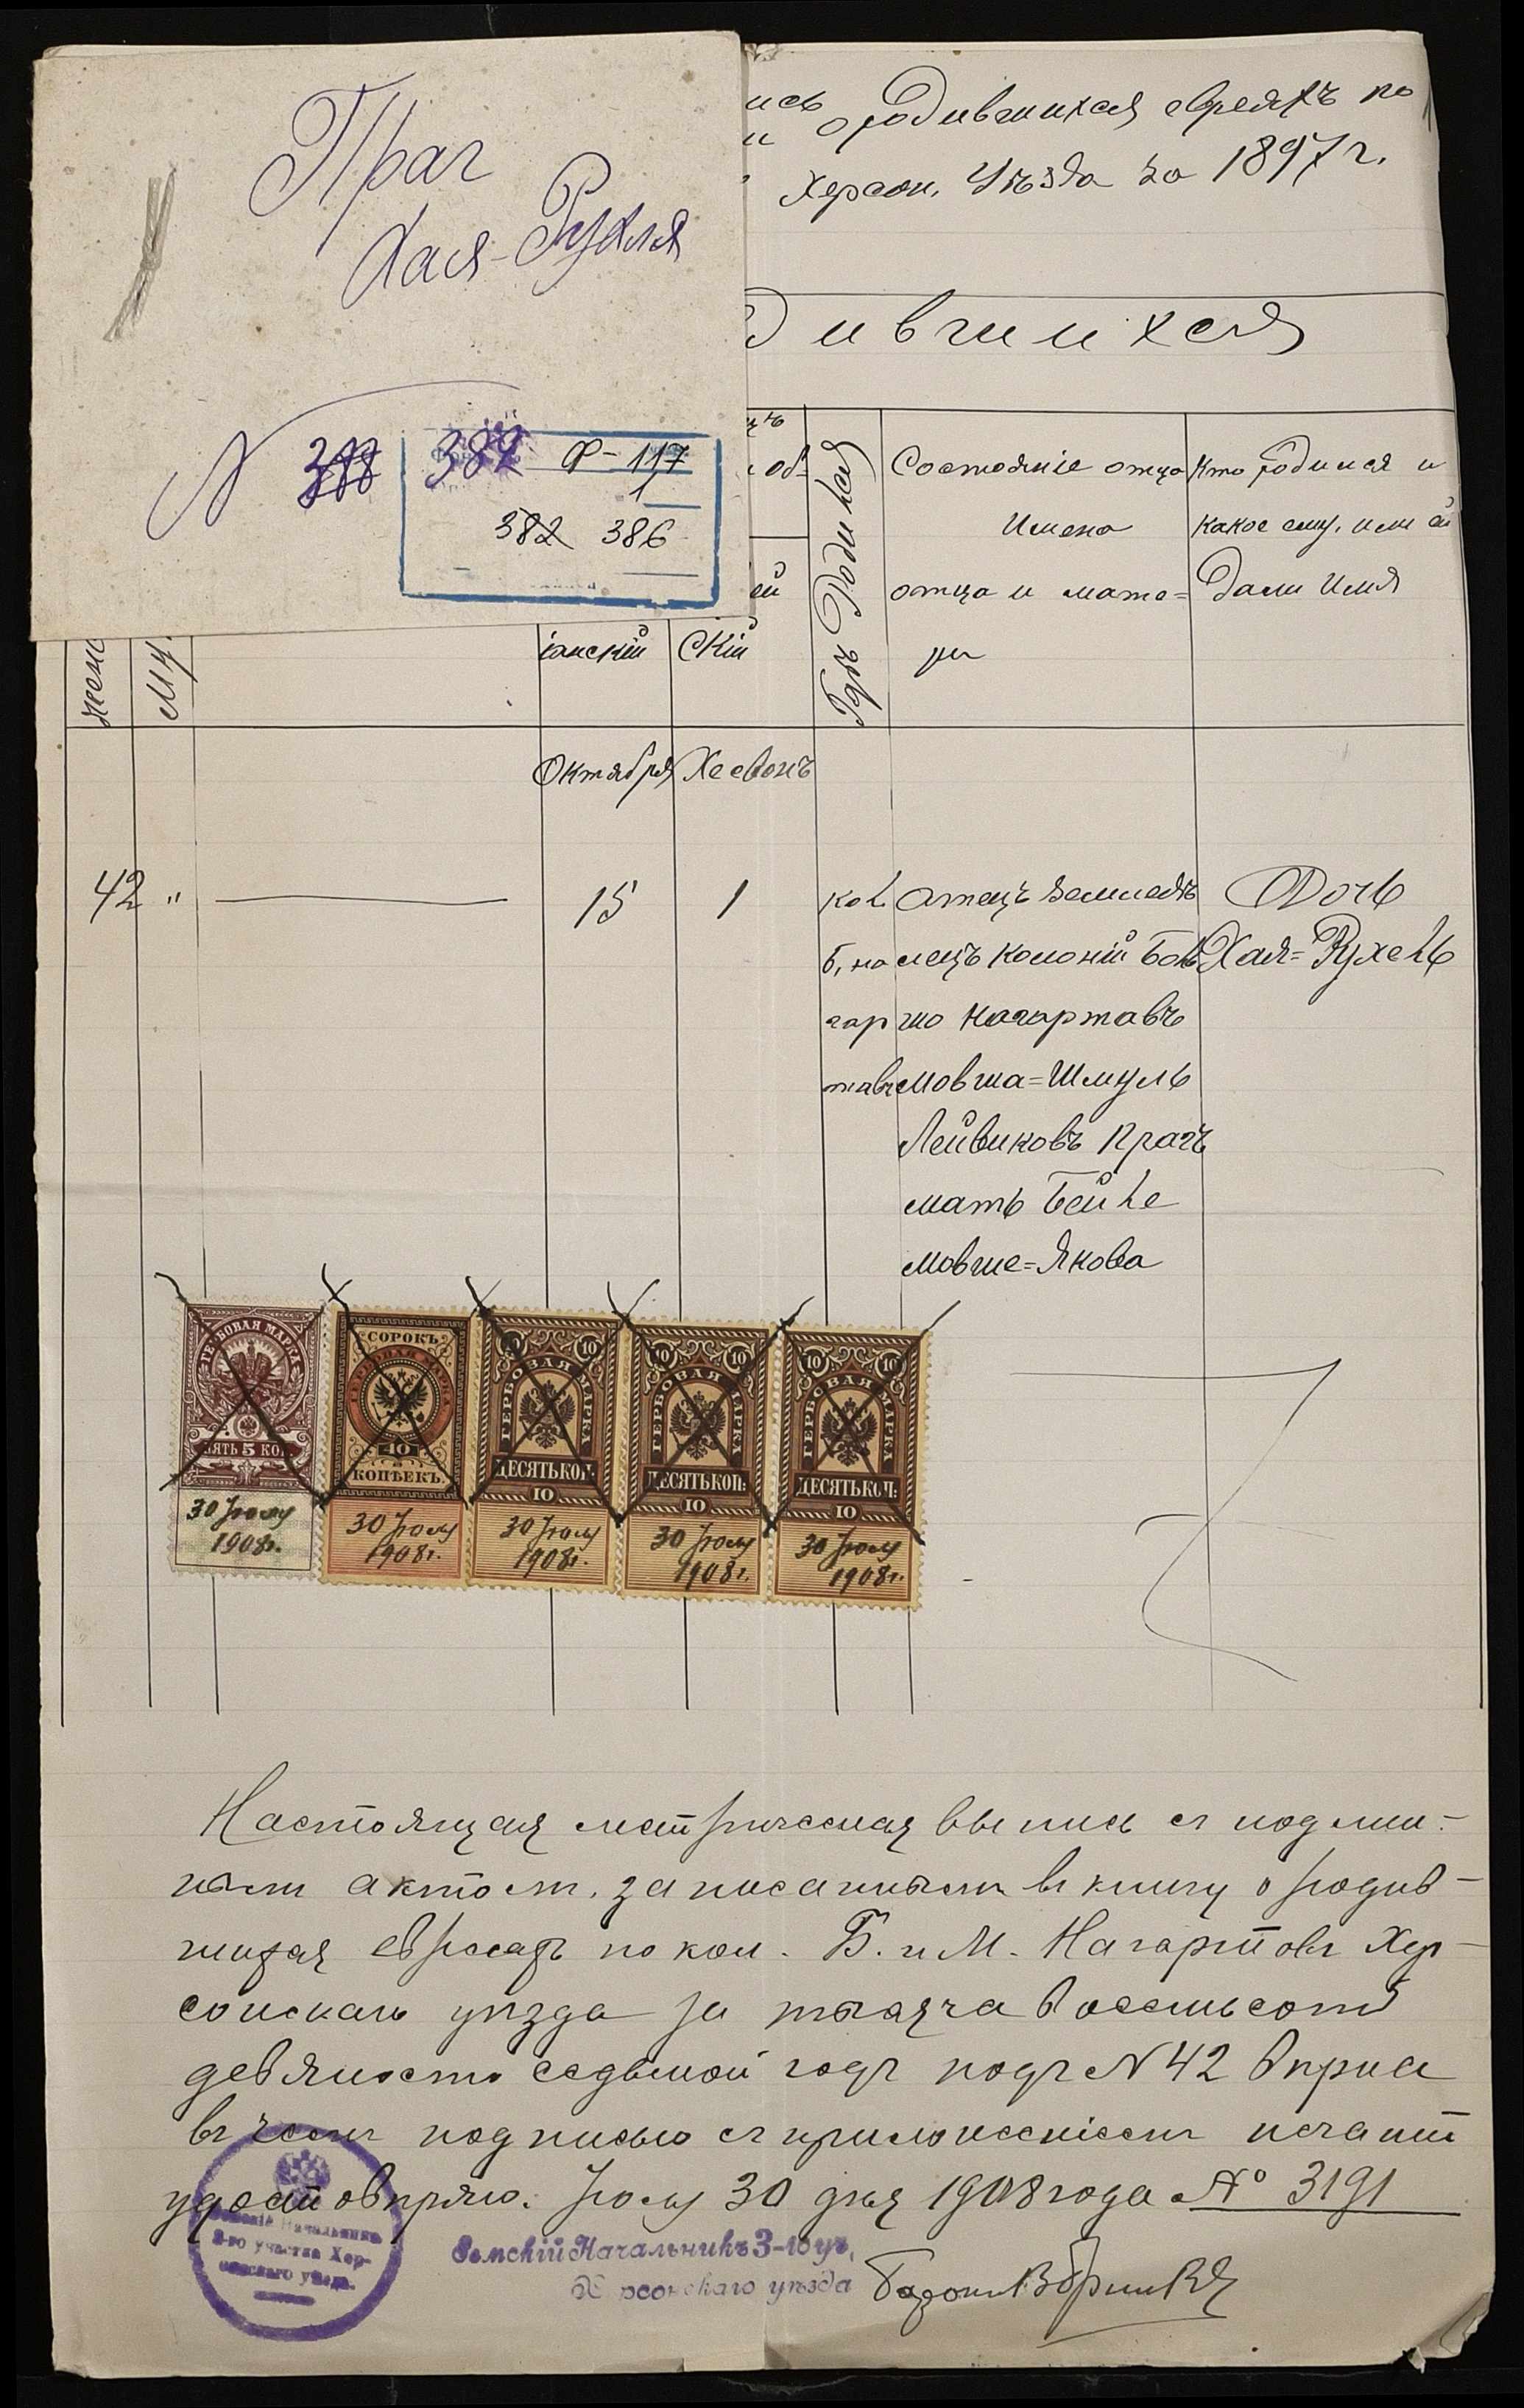 Прагъ
Хая-Рухля
N 388 382
Ф-117
1
382 386
ись о родившихся евреяхъ по
и Херсон. Уѣзда за 1897 г.
дившихся
Состояніе отца
Имена
отца и мате=
ри
Кто родился и
какое ему, или ей
дали имя
Гдѣ Родился
жен
Му
іанскій
скій
Октября Хесвонъ
42 " 15 1
кол
б, на
гар
тавъ
Отецъ Земледѣ
лецъ Колоніи Бол
шо Нагартавъ
Мовша=Шмуль
Лейвиковъ Прагъ
мать Бейле
Мовше=Якова
Дочь
Хая=Рухель
ГЕРБОВАЯ МАРКА
ПЯТЬ 5 КОП.
30 Іюля
1908г.
СОРОКЪ
ГЕРБОВАЯ МАРКА
40
КОПѢЕКЪ.
30 Іюля
1908г.
10 10
ГЕРБОВАЯ МАРКА
ДЕСЯТЬ КОП:
10
30 Іюля
1908г.
10 10
ГЕРБОВАЯ МАРКА
ДЕСЯТЬ КОП:
10
30 Іюля
1908г.
10 10
ГЕРБОВАЯ МАРКА
ДЕСЯТЬ КОП:
10
30 Іюля
1908г.
Настоящая метрическая выпись съ подлин-
нымъ актомъ, записаннымъ въ книгу о родив-
шихся евреяхъ по кол. Б. и М. Нагартовъ Хер-
сонскаго уѣзда за тысяча восемьсотъ
девяносто седьмой годъ подъ N 42 вѣрна
въ чемъ подписью съ приложеніемъ печати
удостовѣряю. Іюля 30 дня 1908 года № 3191
Земскій Начальникъ 3-го уч.
Херсонскаго уѣзда
Земскій Начальникъ
3-го участка Хер-
сонскаго уѣзда.